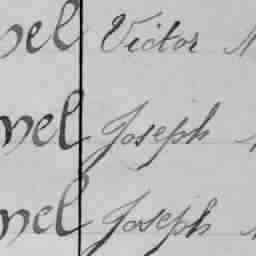 nel Victor
nel Joseph
nel Joseph